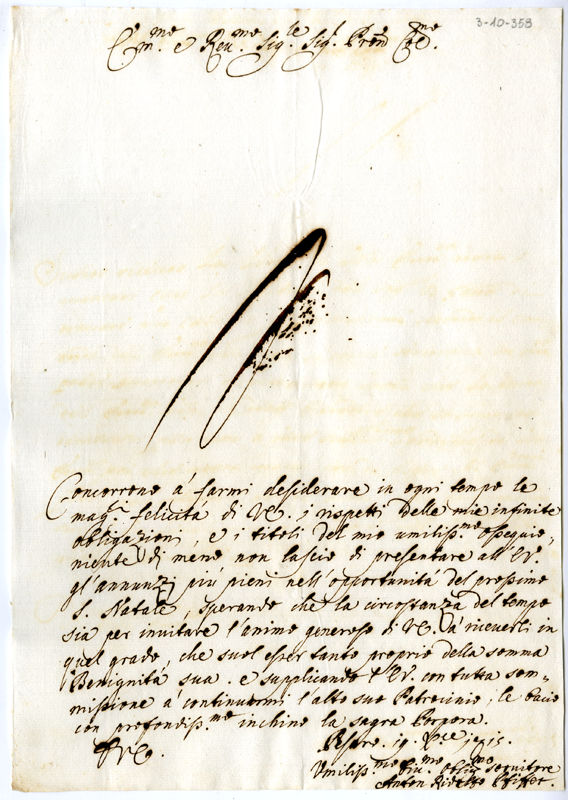 3-10-359
Em.mo e Reu.mo Sig.re Sig.r Pron Col.mo
Concorrono á farmi desiderare in ogni tempo le
mag.ri felicitá di VE. i rispetti delle mie infinite
obligazioni, e i titoli del mio umiliss.mo ossequio,
niente di meno non lascio di presentare all' EV.
gl'annunzj piú pieni nell'opportunitá del prossimo
S. Natale, sperando che la circostanza del tempo
sia per invitare l'animo generoso di VE. á riceuerli in
quel grado, che suol esser tanto proprio della somma
Benignitá sua. e supplicando l'EV. con tutta som-
missione á continuarmi l'alto suo Patrocinio, le bacio
con profondiss.mo inchino la sagra Porpora.
Pesaro. 19. Xbre
Umiliss.mo Diu.mo Obligmo seruitore
Anton Ridolfo Pfiffer.